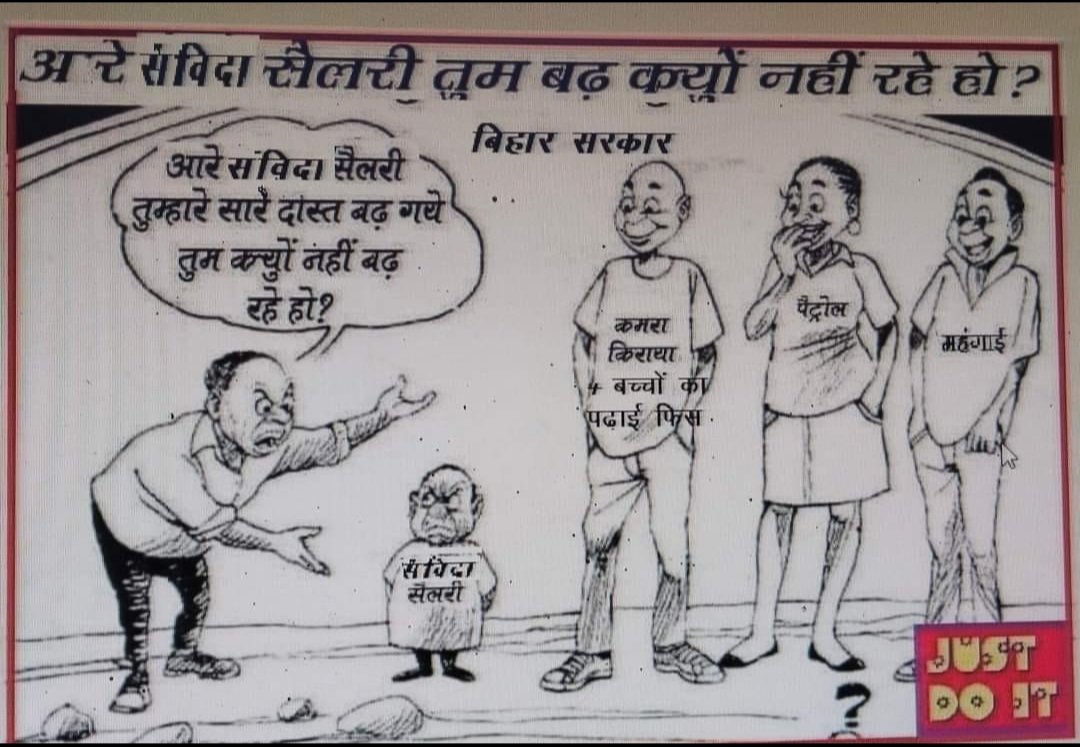 अ रे संविदा सैलरी तुम बढ़ क्यों नहीं रहे हो?
बिहार सरकार
आरे संविदा सैलरी
तुम्हारे सारे दोस्त बढ़ गये
तुम क्यों नहीं बढ़
रहे हो?
कमरा
किराया
+ बच्चों का
पढ़ाई फिस
पैट्रोल
महंगाई
संविदा
सैलरी
JUST
DO IT
?